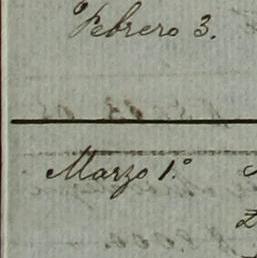 Febrero 3.
Marzo 1.º